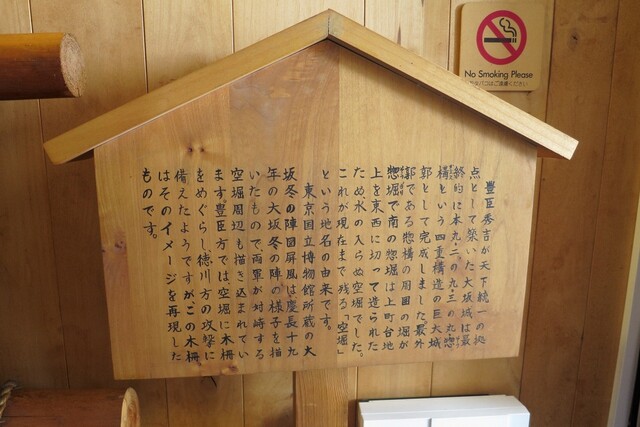 豊臣秀吉が天下統一の拠
点として築いた大坂城は最
終的に本丸・二の丸・三の丸・惣
構という四重構造の巨大城
郭として完成しました。最外
郭である惣構の周囲の堀が
惣堀で南の惣堀は上町台地
上を東西に切って造られた
ため水の入らぬ空堀でした。
これが現在まで残る「空堀」
という地名の由来です。
東京国立博物館所蔵の大
坂冬の陣図屏風は慶長十九
年の大坂冬の陣の様子を描
いたもので、両軍が対峙する
空堀周辺も描き込まれてい
ます。豊臣方では空堀に木柵
をめぐらし徳川方の攻撃に
備えたようですがこの木柵
はそのイメージを再現した
ものです。
No Smoking Please